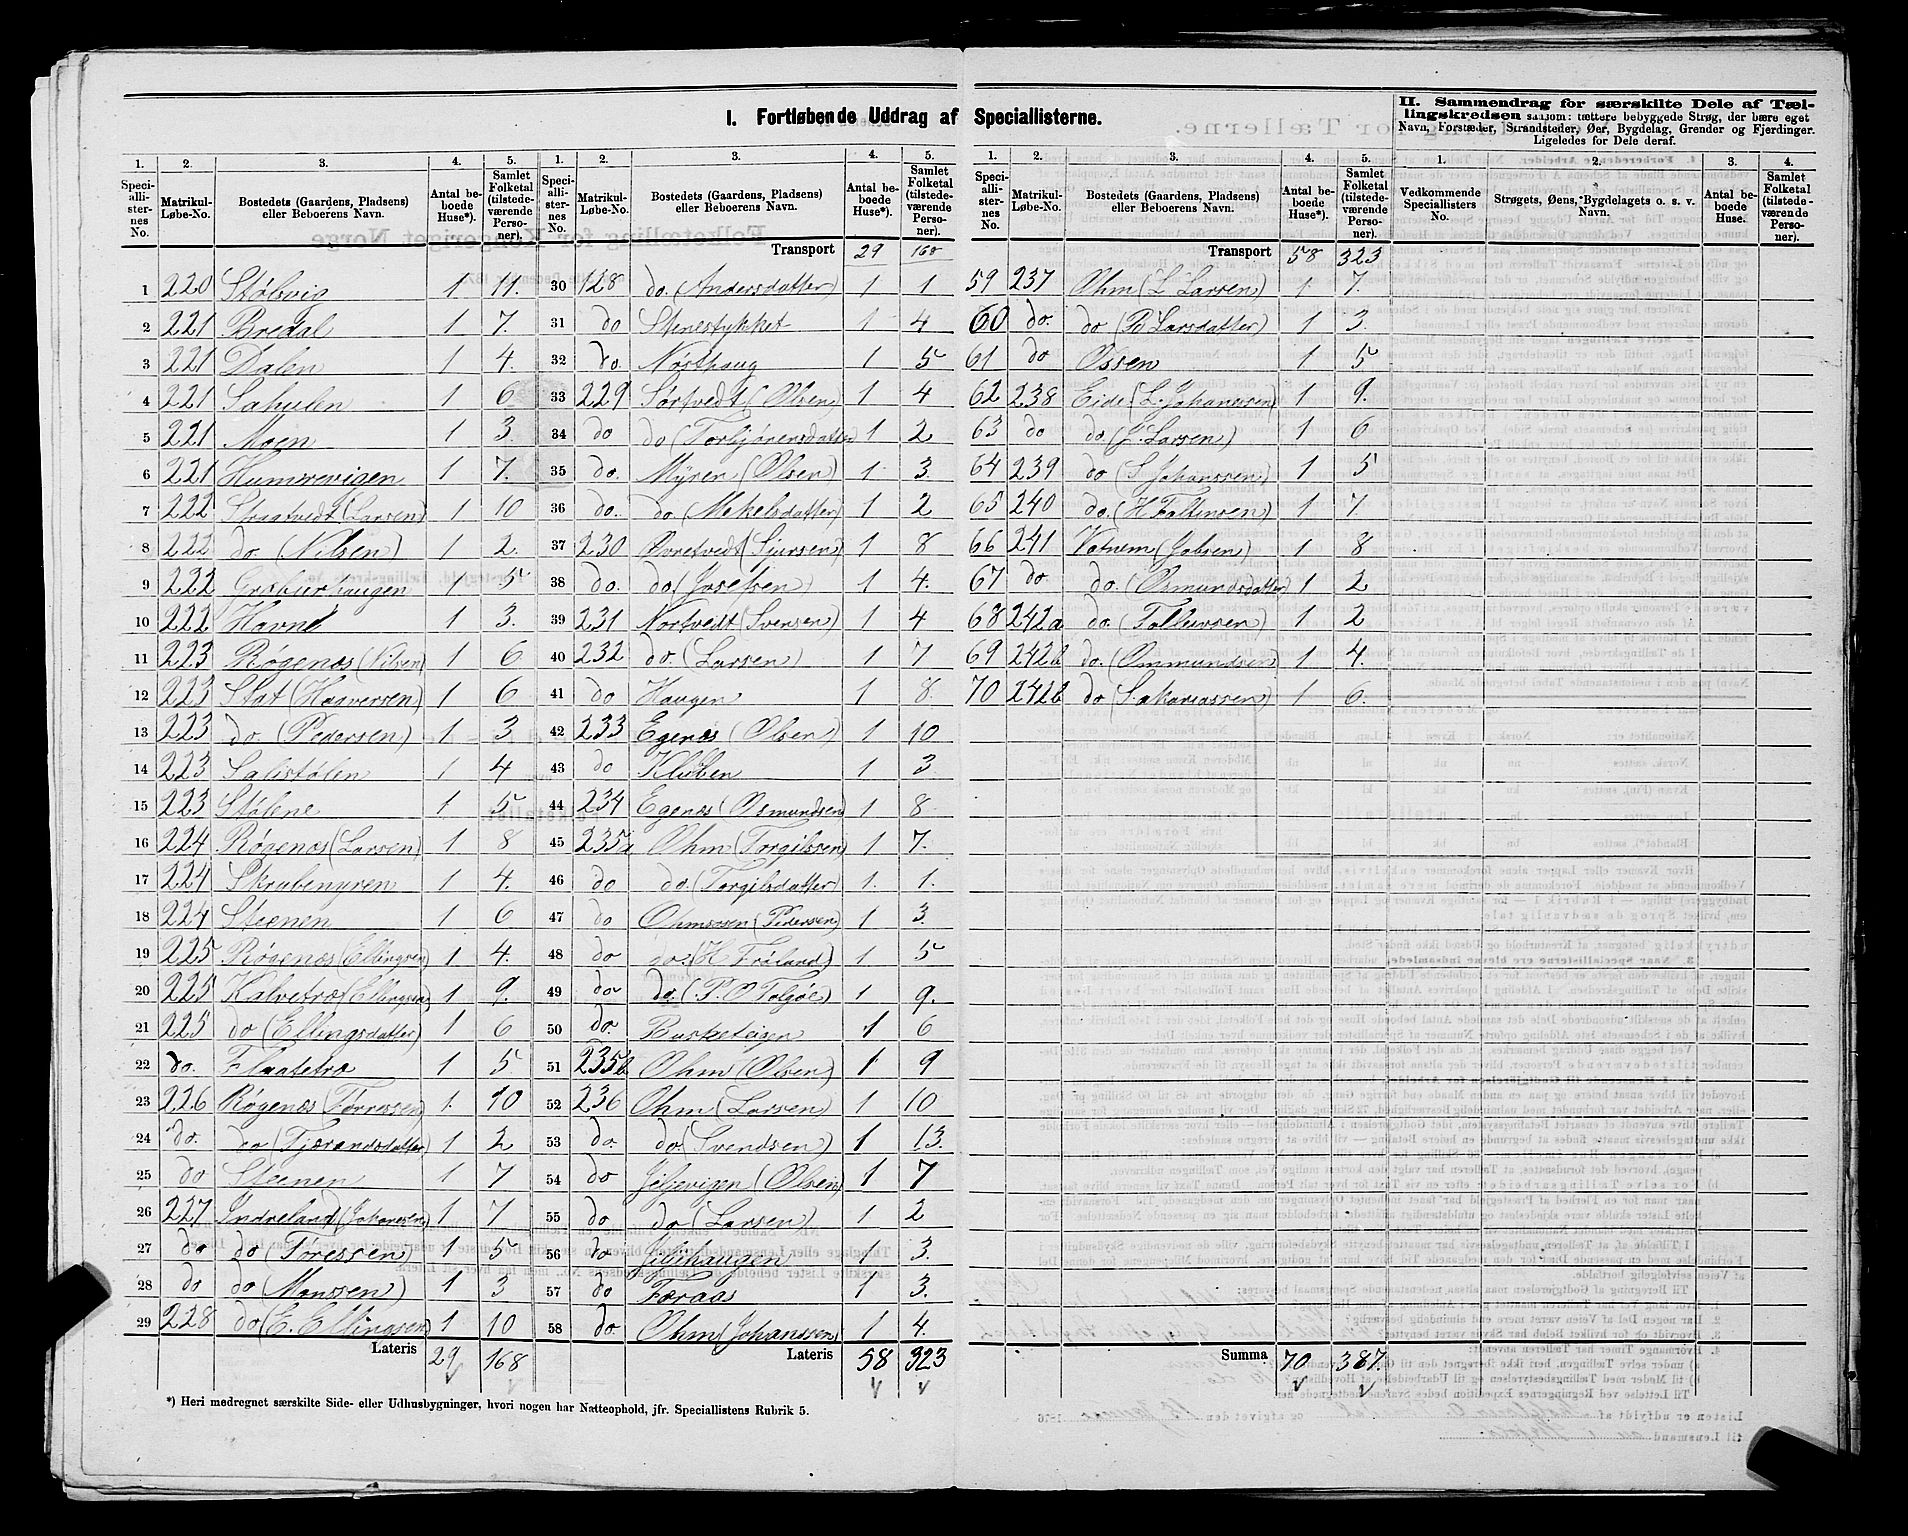 I. Fortløbende Uddrag af Speciallisterne.
II. Sammendrag for særskilte Dele af Tællingskredsen saasom: tættere bebyggede Strøg, der bære eget Navn, Forstæder, Strandsteder, Øer, Bygdelag, Grender og Fjerdinger. Ligeledes for Dele deraf.
1. 2. 3. 4. 5. 1. 2. 3. 4. 5. 1. 2. 3. 4. 5. 1. 2. 3. 4.
Speciallisternes No. Matrikul-Løbe-No. Bostedets (Gaardens, Pladsens) eller Beboerens Navn. Antal beboede Huse*). Samlet Folketal (tilstedeværende Personer).
Speciallisternes No. Matrikul-Løbe-No. Bostedets (Gaardens, Pladsens) eller Beboerens Navn. Antal beboede Huse*). Samlet Folketal (tilstedeværende Personer).
Speciallisternes No. Matrikul-Løbe-No. Bostedets (Gaardens, Pladsens) eller Beboerens Navn. Antal beboede Huse*). Samlet Folketal (tilstedeværende Personer).
Vedkommende Speciallisters No. Strøgets, Øens, Bygdelagets o. s. v. Navn. Antal beboede Huse. Samlet Folketal (tilstedeværende Personer).
1 220 Stølsvig 1 11.
2 221 Bredal 1 7.
3 221 Dalen 1 4.
4 221 Sahulen 1 6
5 221 Moen 1 3
6 221 Humrevigen 1 7.
7 222 Straatvedt (Larsen) 1 10
8 222 do. (Nilsen) 1 2.
9 222 1 5
10 222 Havne 1 3.
11 223 Røgenæs (Nilsen) 1 6
12 223 Stat (Haaversen) 1 6
13 223 do. (Pedersen) 1 3
14 223 Salistølen 1 4
15 223 Stølene 1 5
16 224 Røgenæs (Larsen) 1 8
17 224 Skrubemyren 1 4.
18 224 Steenen 1 6
19 225 Røgenæs (Ellingsen) 1 4.
20 225 Kalvetræ (Ellingsen) 1 9.
21 225 do (Ellingsdatter) 1 6
22 do. Flaatetræ 1 5
23 226 Røgenæs (Tørressen) 1. 10
24 do. do (Tjærandsdatter) 1 2
25 do Steenen 1 7
26 227 Indreland (Johansen) 1 7
27 do do (Tøressen) 1 5
28 do do (Monssen) 1 3
29 228 do (E. Ellingsen) 1 10
Lateris 29 168
Transport 29 168
30 128 do. (Andersdatter) 1 1
31 do Stenestykket 1 4
32 do. Nösthaug 1 5
33 229 Sørtvedt (Olsen) 1 4
34 do do (Torbjørensdatter) 1 2
35 do. Myren (Olsen) 1 3.
36 do. do. (Mekelsdatter) 1 2
37 230 Øvretvedt (Sjursen) 1 8
38 do. do (Josefsen) 1 4.
39 231 Nortvedt (Svensen) 1 4
40 232 do. (Larsen) 1 7
41 do Haugen 1 8.
42 233 Egenæs (Olsen) 1 10
43 do Kluben 1 3
44 234 Egenæs (Osmundsen) 1 8
45 235a Ohm (Torgilssen) 1 7.
46 do do. (Torgilsdatter) 1. 1.
47 do Ohmsosen (Pedersen) 1 3
48 do do (H Frøland) 1 5
49 do do. (P. O Tolgøe) 1 9.
50 do. Busketeigen 1 6
51 235b Ohm (Olsen) 1 9
52 236 Ohm (Larsen) 1 10
53 do. do. (Svendsen) 1 13.
54 do Jiljevigen (Olsen) 1 7
55 do do (Larsen) 1 2
56 do Jiljehaugen 1 3.
57 do Færaas 1 3.
58 do. Ohm (Johanssen) 1 4.
Lateris 58 323
Transport 58 323
59 237 Ohm (L. Larsen) 1 7.
60 do. do (P. Larsdatter) 1 3.
61 do Ossen 1 5
62 238 Eide (L. Johanessen) 1 9.
63 do do. (J. Larsen) 1 6
64 239 do (S. Johanssen) 1 5
65 240 do. (H Faltinsen) 1 7
66 241 Vatnem (Jobsen) 1 8
67 do do. (Osmundsdatter) 1 2
68 242a do. (Tolleivsen) 1 2
69 242b do. (Ommundsen) 1 4.
70 242b do (Sakariassen) 1 6.
Summa 70. 387.
*) Heri medregnet særskilte Side- eller Udhusbygninger, hvori nogen har Natteophold, jfr. Speciallistens Rubrik 5.